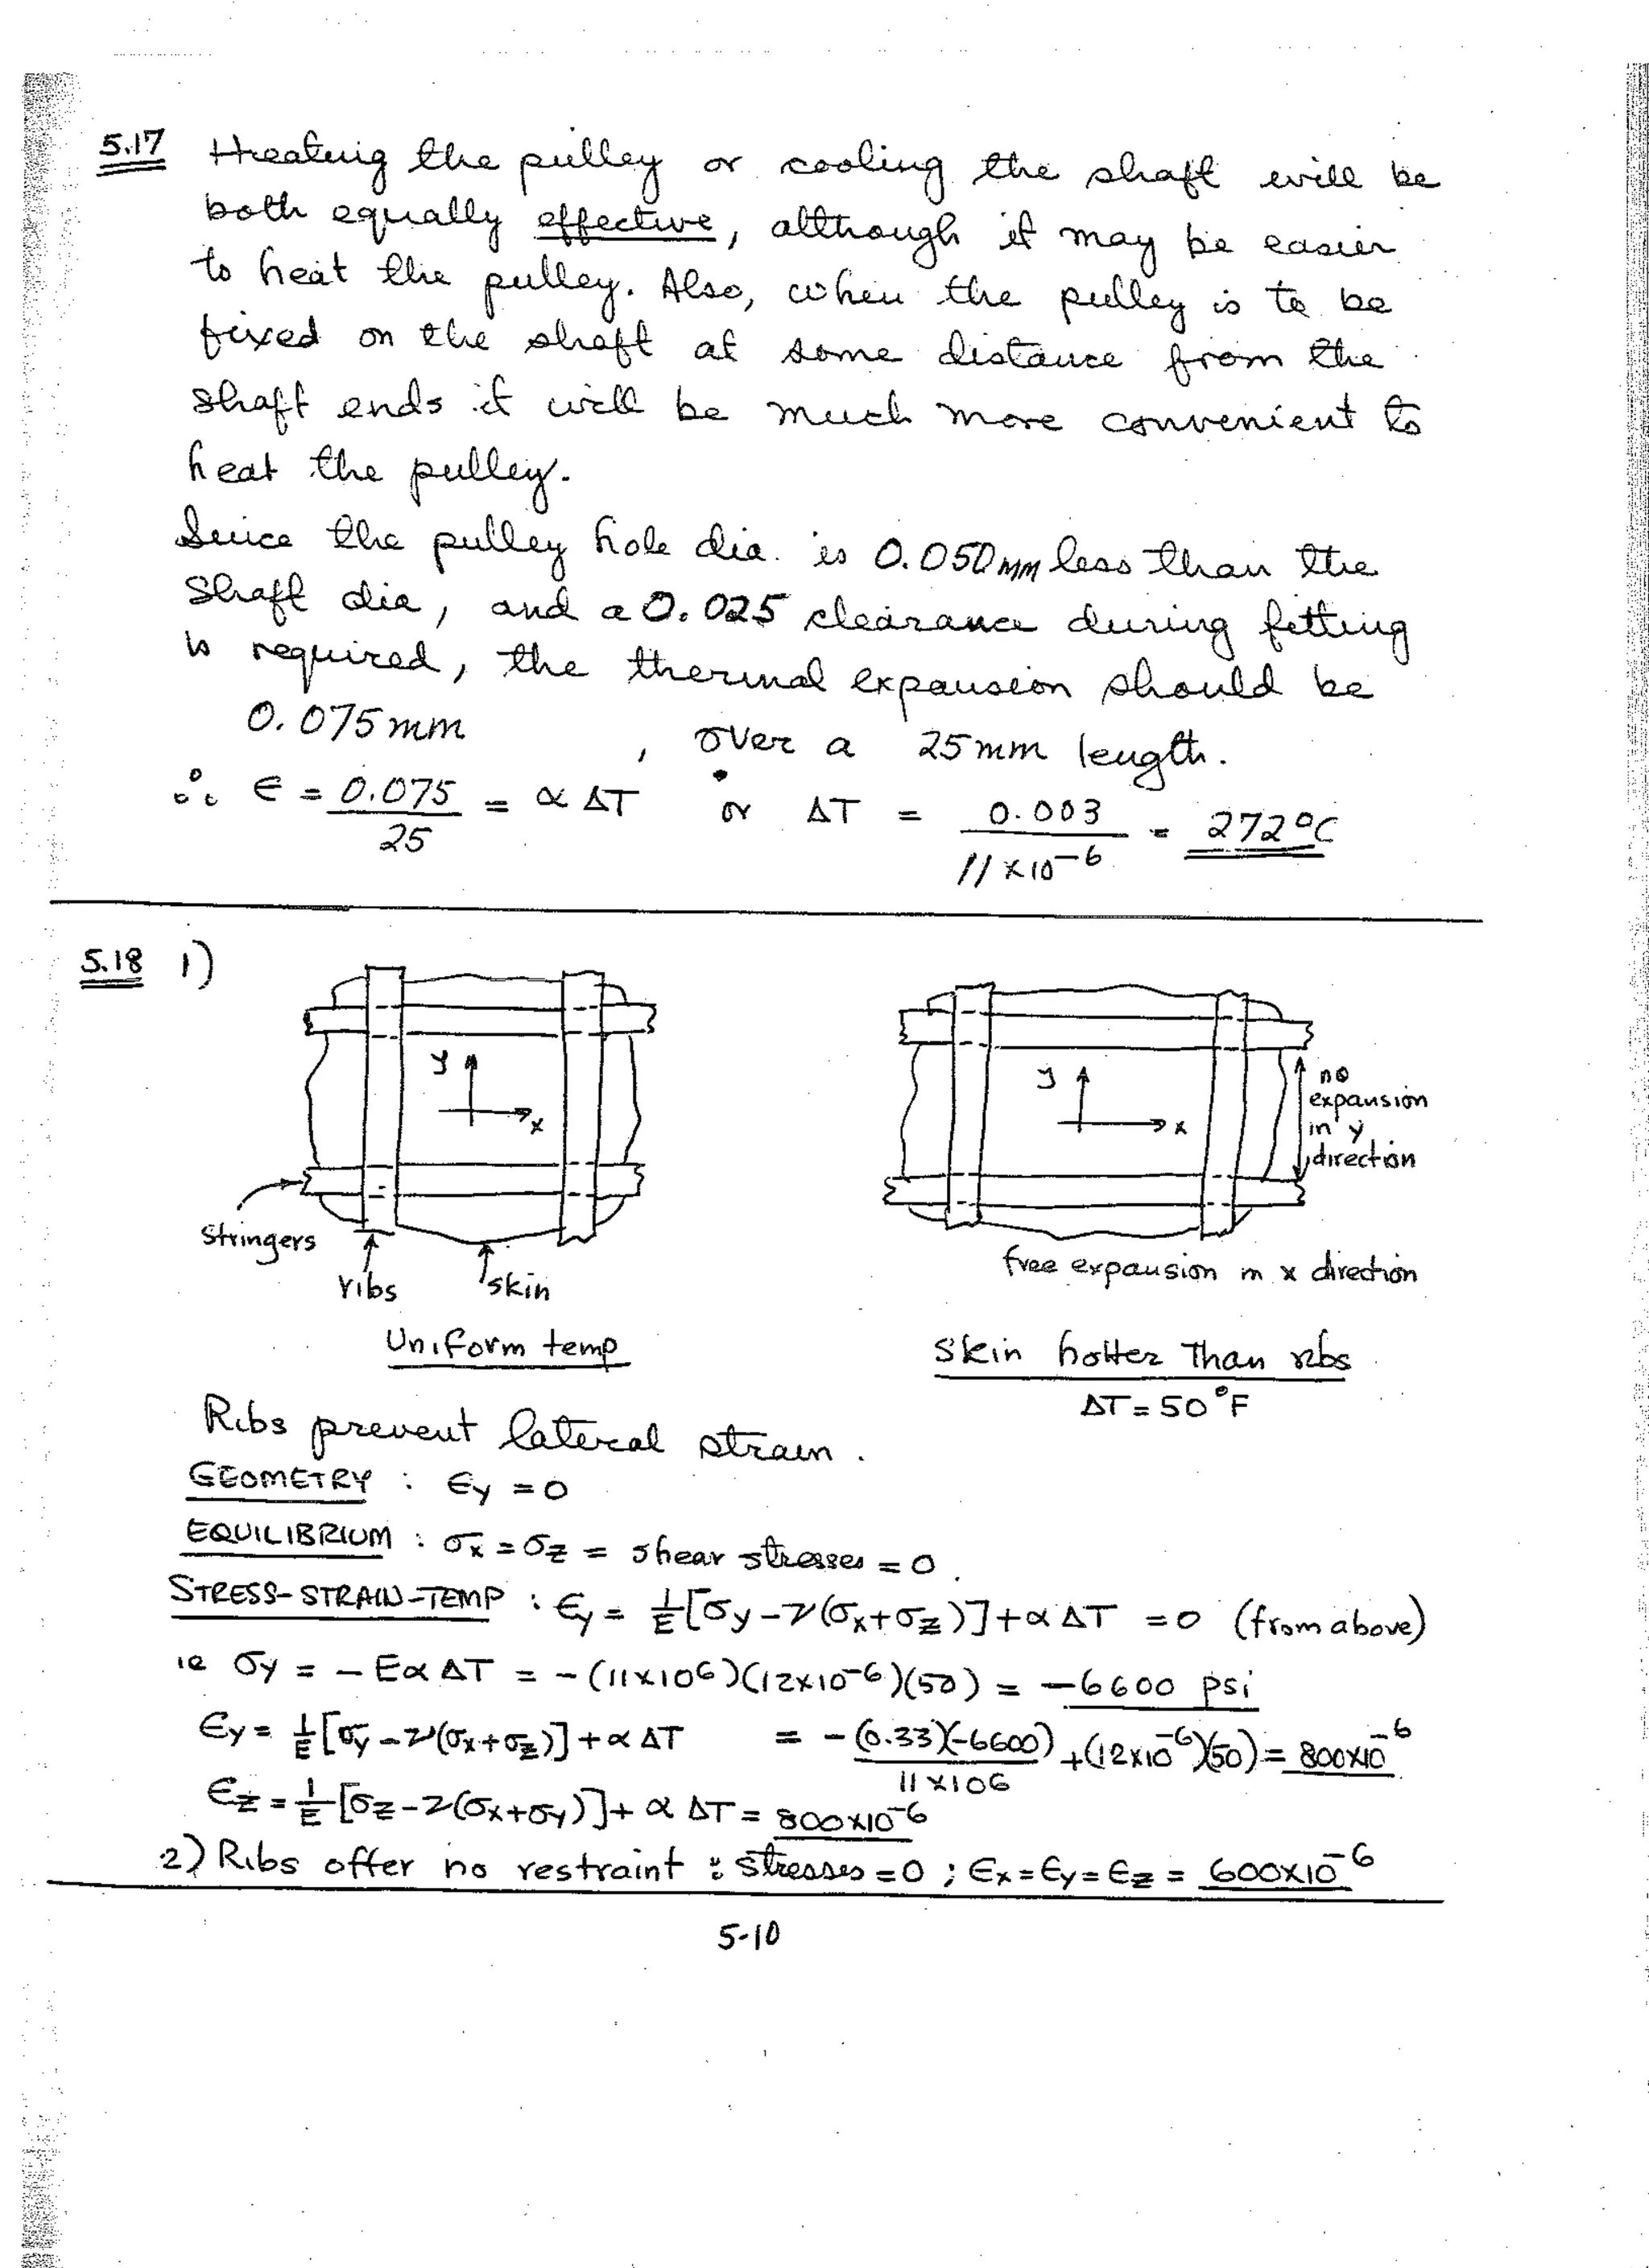 5.17 Heating the pulley or cooling the shaft will be
both equally effective, although it may be easier
to heat the pulley. Also, when the pulley is to be
fixed on the shaft at some distance from the
shaft ends it will be much more convenient to
heat the pulley.
Since the pulley hole dia. is 0.050 mm less than the
shaft dia, and a 0.025 clearance during fitting
is required, the thermal expansion should be
0.075 mm , over a 25 mm length.
∴ ϵ = 0.075/25 = α ΔT or ΔT = 0.003/11×10⁻⁶ = 272°C
5.18 1)
y
x
Stringers
ribs
skin
Uniform temp
y
x
no
expansion
in y
direction
free expansion in x direction
Skin hotter Than ribs
ΔT = 50°F
Ribs prevent lateral strain.
GEOMETRY : ϵy = 0
EQUILIBRIUM : σx = σz = shear stresses = 0.
STRESS-STRAIN-TEMP : ϵy = 1/E[σy - ν(σx+σz)]+αΔT = 0 (from above)
ie σy = - EαΔT = -(11×10⁶)(12×10⁻⁶)(50) = -6600 psi
ϵy = 1/E[σy - ν(σx+σz)]+αΔT = -(0.33)(-6600)/11×10⁶ +(12×10⁻⁶)(50) = 800×10⁻⁶
ϵz = 1/E[σz - ν(σx+σy)]+ αΔT = 800×10⁻⁶
2) Ribs offer no restraint : stresses = 0 ; ϵx = ϵy = ϵz = 600×10⁻⁶
5-10